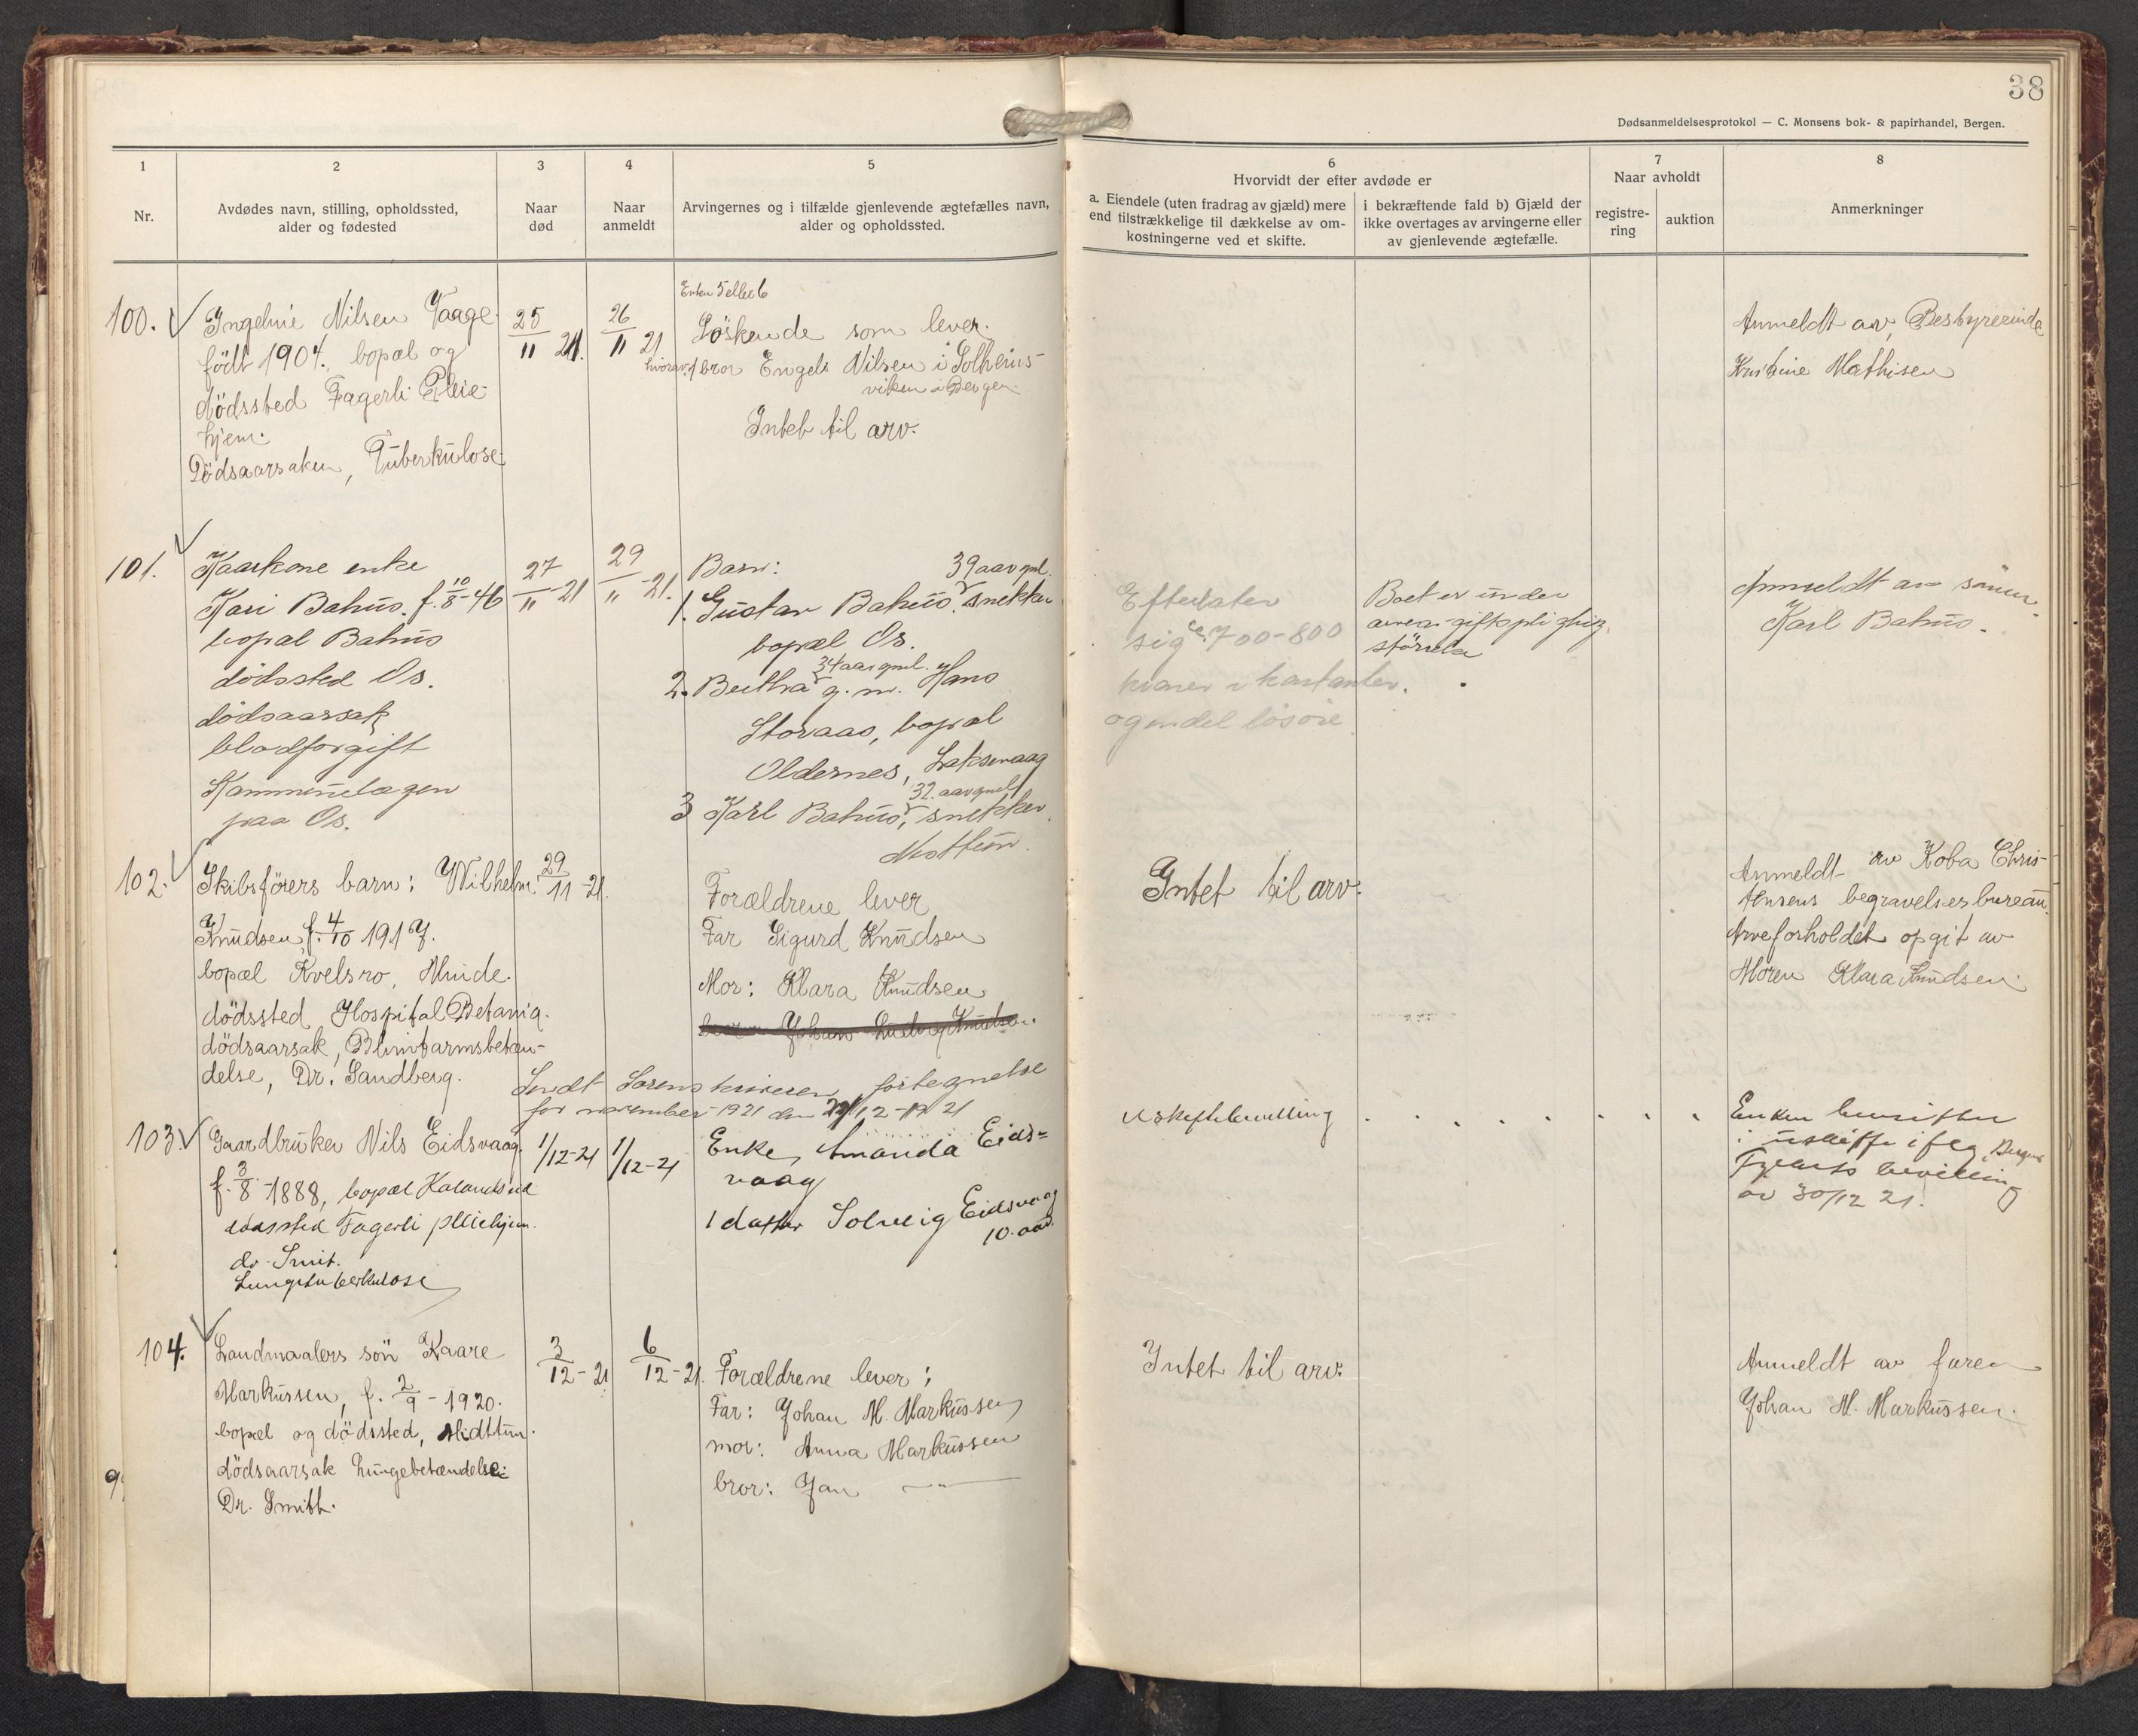 38
Dødsanmeldelsesprotokol — C. Monsens bok- & papirhandel, Bergen.
1
2
3
4
5
6
7
8
Nr.
Avdødes navn, stilling, opholdssted,
alder og fødested
Naar
død
Naar
anmeldt
Arvingernes og i tilfælde gjenlevende ægtefælles navn,
alder og opholdssted.
Hvorvidt der efter avdøde er
a. Eiendele (uten fradrag av gjæld) mere
end tilstrækkelige til dækkelse av om-
kostningerne ved et skifte.
i bekræftende fald b) Gjæld der
ikke overtages av arvingerne eller
av gjenlevende ægtefælle.
Naar avholdt
registre-
ring
auktion
Anmerkninger
100.
Ingeline Nilsen Vaage
født 1904. bopæl og
dödssted Fagerli Pleie-
hjem.
Dödsaarsaken, Tuberkulose
25/11 21.
26/11 21
Enten 5 eller 6
Söskende som lever.
hvorav 1 bror Engels Nilsen i Solheims-
viken i Bergen.
Intet til arv.
Anmeldt av Bestyrerinde
Kristine Mathisen
101.
Kaarkone enke
Kari Bahus. f. 10/8-46
bopæl Bahus
dödssted Os.
dödsaarsak
blodforgift
Kommunelægen
paa Os.
27/11 21
29/11 -21.
Barn: 39 aar gml.
1. Gustav Bahus, snekker
bopæl Os.
34 aar gml.
2. Bertha g. m. Hans
Storaas, bopæl
Oldernes, Laksevaag
32 aar gml
3 Karl Bahus, snekker
Nesttun.
Efterlater
sig ca. 700-800
kroner i kontanter.
og en del løsøre
Boet er under
arveavgiftspligtig
störrelse
Anmeldt av sönn.
Karl Bahus.
102.
Skibsförers barn: Wilhelm
Knudsen, f. 4/10 1917.
bopæl Kvelsro, Minde.
dödssted, Hospital Betania.
dödsaarsak, Blindtarmsbetæn-
delse, Dr. Sandberg.
29/11 -21.
Forældrene lever
Far Sigurd Knudsen
Mor: Klara Knudsen
bror Johan Ludvig Knudsen.
Intet til arv.
Anmeldt av Koba Chris-
tensens begravelsesbureau.
Arveforholdet opgit av
Moren Klara Knudsen.
Sendt Sorenskriveren fortegnelse
for november 1921 den 12-1921
103
Gaardbruker Nils Eidsvaag.
f. 3/8 -1888, bopæl Kalandseid
dødssted Fagerli pleiehjem.
dr. Smit.
Lungetuberkulose
1/12-21
1/12-21
Enke, Amanda Eids=
vaag
1 datter Solveig Eidsvaag
10. aar.
Uskiftebevilling
Enken hensitter
i uskifte iflg. Bergens
bevilling
av 30/12 21.
104.
Landmaalers sön Kaare
Markussen, f. 2/9 - 1920.
bopæl og dödssted, Midttun.
dödsaarsak Lungebetændelse
Dr. Smith.
3/12 - 21
6/12 - 21.
Forældrene lever;
Far: Johan M. Markussen
mor: Anna Markussen
bror: Jan — " —
Intet til arv.
Anmeldt av faren
Johan M. Markussen.